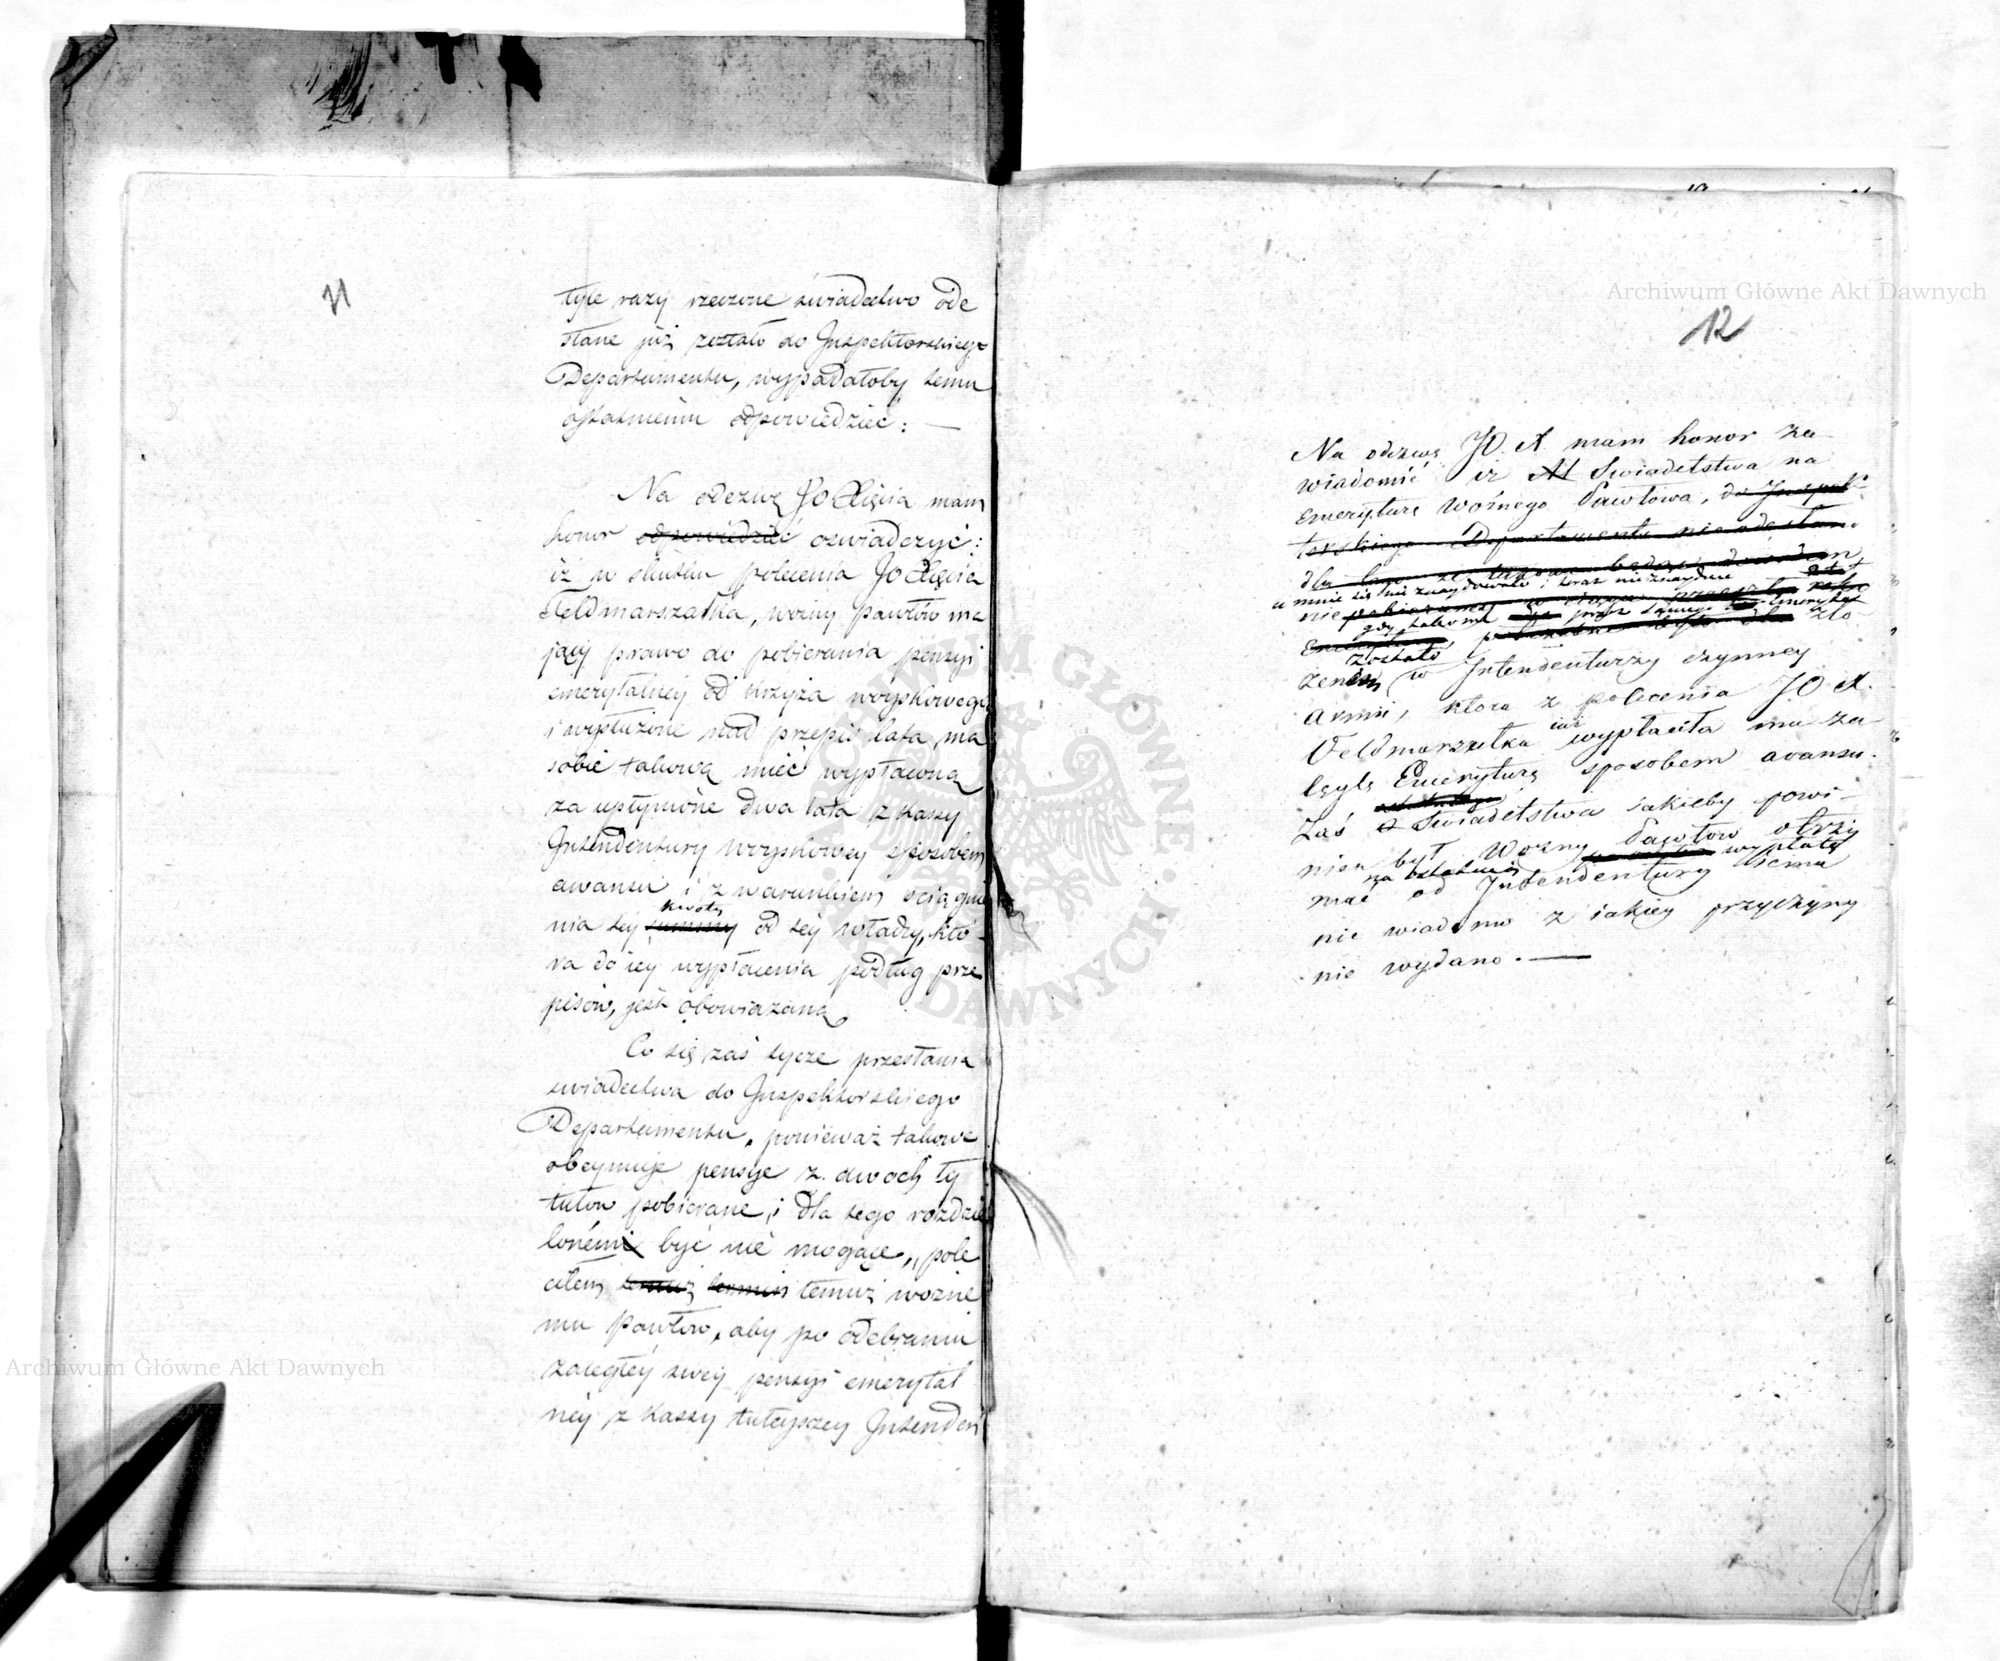 11
tyle razy rzeczone świadectwo ode
słane już zostało do Inspektorskiego
Departamentu, wypadałoby temu
ostatniemu odpowiedzieć: —
Na odezwę JO Xięcia mam
honor odpowiedzieć oświadczyć:
iż w skutku polecenia JO Xięcia
Feldmarszałka, woźny Pawłów ma
jący prawo do pobierania pensyi
emerytalney od krzyża woyskowego
i wysłużone nad przepis lata, ma
sobie takową mieć wypłaconą
za upłynione dwa lata z Kassy
Intendentury Woyskowey sposobem
awansu i z warunkiem ściągnie
kwoty
nia tey summy od tey władzy, któ-
ra do iey wypłacenia podług prze
pisów, jest obowiązaną
Co się zaś tycze przesłania
swiadectwa do Inspektorskiego
Departamentu, ponieważ takowe
obeymuje pensye z dwoch ty
tułów pobierane, i dla tego rozdzie
lonémi być nie mogące, pole
ciłem temuż temuż woźne
mu Pawłow, aby po odebraniu
zaległéy swey pensyi emerytal
néy z Kassy tuteyszey Intenden
Archiwum Główne Akt Dawnych
Archiwum Główne Akt Dawnych
12
Na odezwę JO. X mam honor za-
wiadomić iż Swiadetstwa na
Emeryturę Woźnego Pawłowa, do Inspek-
torskiego Departamentu nie odesłano
dla tego że
u mnie się nie znaydowało i teraz nie znayduie
nie
gdy takowe przez samego Emeryta
zło
zostało
żenem w Intendenturzy czynney
Armii, ktora z polecenia JO X.
Feldmarszałka iuż wypłaciła mu za-
ległę Emeryturę sposobem avansu.
Zaś Swiadetstwa iakieby powi-
nien był Woźny Pawłow otrzy
na ostatnią wypłatę
mać od Intendentury iemu
nie wiadomo z iakiey przyczyny
nie wydano. —
ARCHIWUM GŁÓWNE AKT DAWNYCH